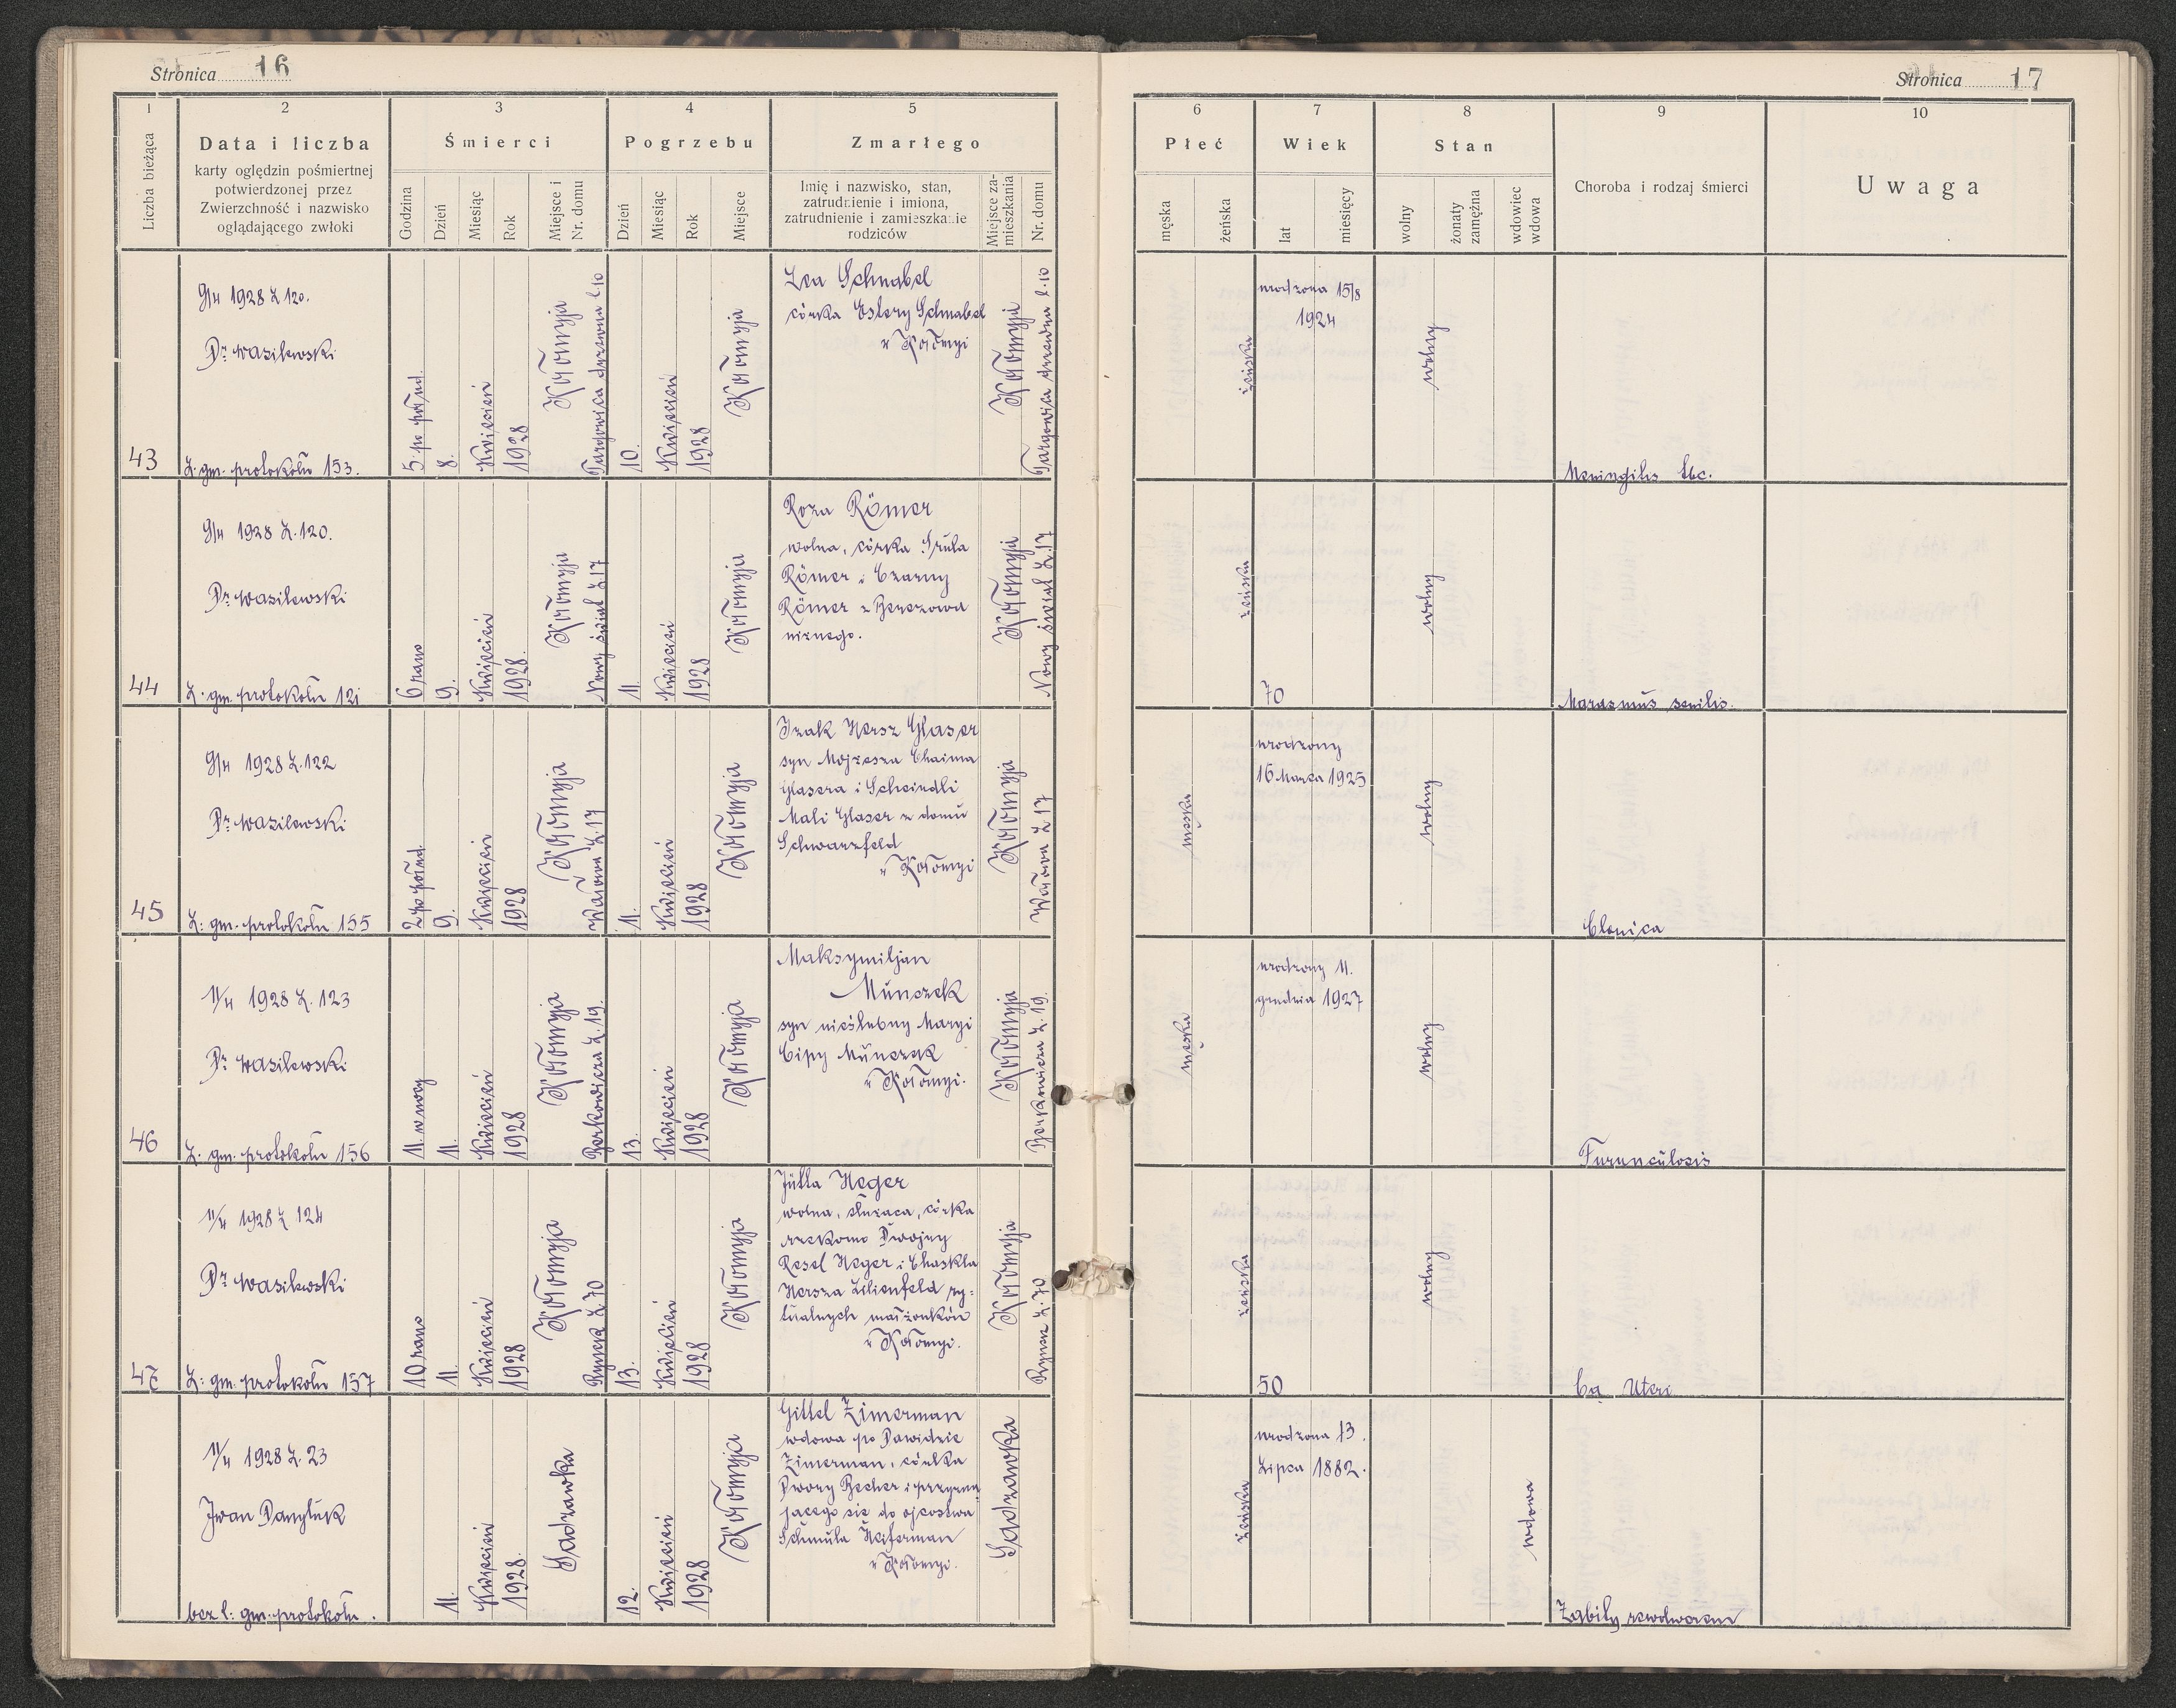 Stronica 16
1 2 3 4 5
Liczba bieżąca
Data i liczba
karty oględzin pośmiertnej
potwierdzonej przez
Zwierzchność i nazwisko
oglądającego zwłoki
Śmierci
Godzina
Dzień
Miesiąc
Rok
Miejsce i
Nr. domu
Pogrzebu
Dzień
Miesiąc
Rok
Miejsce
Zmarłego
Imię i nazwisko, stan,
zatrudnienie i imiona,
zatrudnienie i zamieszkanie
rodziców
Miejsce za-
mieszkania
Nr. domu
43
9/4 1928 L 120.
Dr Wasilewski
L. gm. protokołu 153.
5. po połud.
8.
Kwiecień
1928
Kołomyja
Targowica drzewna l. 10
10.
Kwiecień
1928
Kołomyja
Lea Schnabel
córka Estery Schnabel
z Kołomyi
Kołomyja
Targowica drzewna l. 10
44
9/4 1928 L. 120.
Dr Wasilewski
L. gm. protokołu 121
6 rano
9.
Kwiecień
1928.
Kołomyja
Nowy świat L 17
11.
Kwiecień
1928
Kołomyja
Roza Römer
wolna, córka Srula
Römer i Czarny
Römer z Berezowa
niznego.
Kołomyja
Nowy świat L. 17
45
9/4 1928 L. 122
Dr Wasilewski
L: gm. protokołu 155
2 po połud.
9.
Kwiecień
1928
Kołomyja
Wałowa L. 17
11.
Kwiecień
1928
Kołomyja
Izak Hersz Glaser
syn Mojzesza Chaima
Glasera i Scheindli
Mali Glaser z domu
Schwarzfeld
z Kołomyi
Kołomyja
Wałowa L 17
46
11/4 1928 L. 123
Dr Wasilewski
L. gm. protokołu 156
11. w nocy
11.
Kwiecień
1928
Kołomyja
Berkowicza L. 19.
13.
Kwiecień
1928
Kołomyja
Maksymiljan
Münczek
syn nieślubny Maryi
Cipy Münczek
z Kołomyi.
Kołomyja
Berkowicza L. 19.
47
11/4 1928 L 124
Dr Wasilewski
L: gm. protokołu 157
10 rano
11.
Kwiecień
1928
Kołomyja
Rynek L. 70
13.
Kwiecień
1928
Kołomyja
Jütta Heger
wolna, służaca, córka
rzekomo Dwojny
Resel Heger i Chaskla
Hersza Lilienfeld ry-
tualnych małżonków
z Kołomyi.
Kołomyja
Rynek L. 70
11/4 1928 L. 23
Iwan Danyluk
bez l: gm. protokołu.
11.
Kwiecień
1928.
Sadzawka
12.
Kwiecień
1928
Kołomyja
Gittel Zimerman
wdowa po Dawidzie
Zimerman, córka
Dwory Becher i przyzna
jacego się do ojcostwa
Schmula Heiferman
z Kołomyi.
Sadzawka
Stronica 17
6 7 8 9 10
Płeć
męska
żeńska
Wiek
lat
miesięcy
Stan
wolny
żonaty
zamężna
wdowiec
wdowa
Choroba i rodzaj śmierci
Uwaga
żeńska
urodzona 15/8
1924
wolny
Meningitis tbc.
żeńska
70
wolny
Marasmus senilis.
męska
urodzony
16 Marca 1925
wolny
Clonica
męska
urodzony 11.
grudnia 1927
wolny
Furunculosis
żeńska
50
wolny
Ca Uteri
żeńska
urodzona 13.
Lipca 1882.
wdowa
Zabity rewolwerem